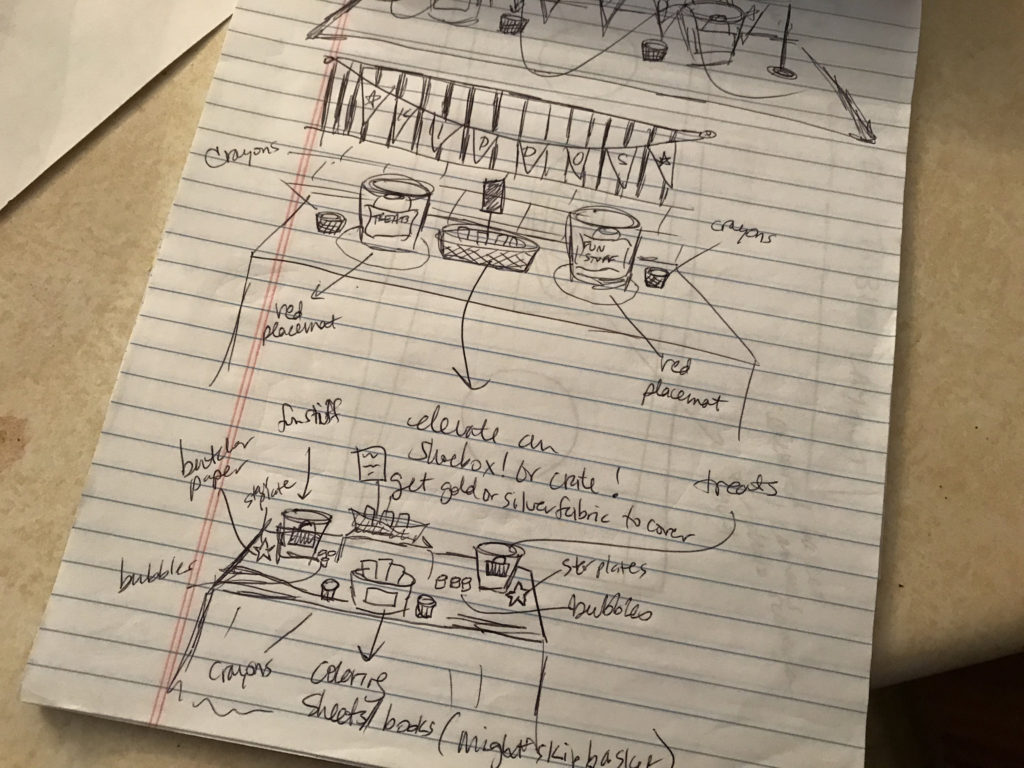 HIPPOS
crayons
TREATS
FUN
STUFF
crayons
red
placemat
red
placemat
elevate on
Shoebox! or crate!
get gold or silver fabric to cover
fun stuff
butcher
paper
star plate
treats
bubbles
star plates
bubbles
crayons
Coloring
Sheets/books (might skip basket)